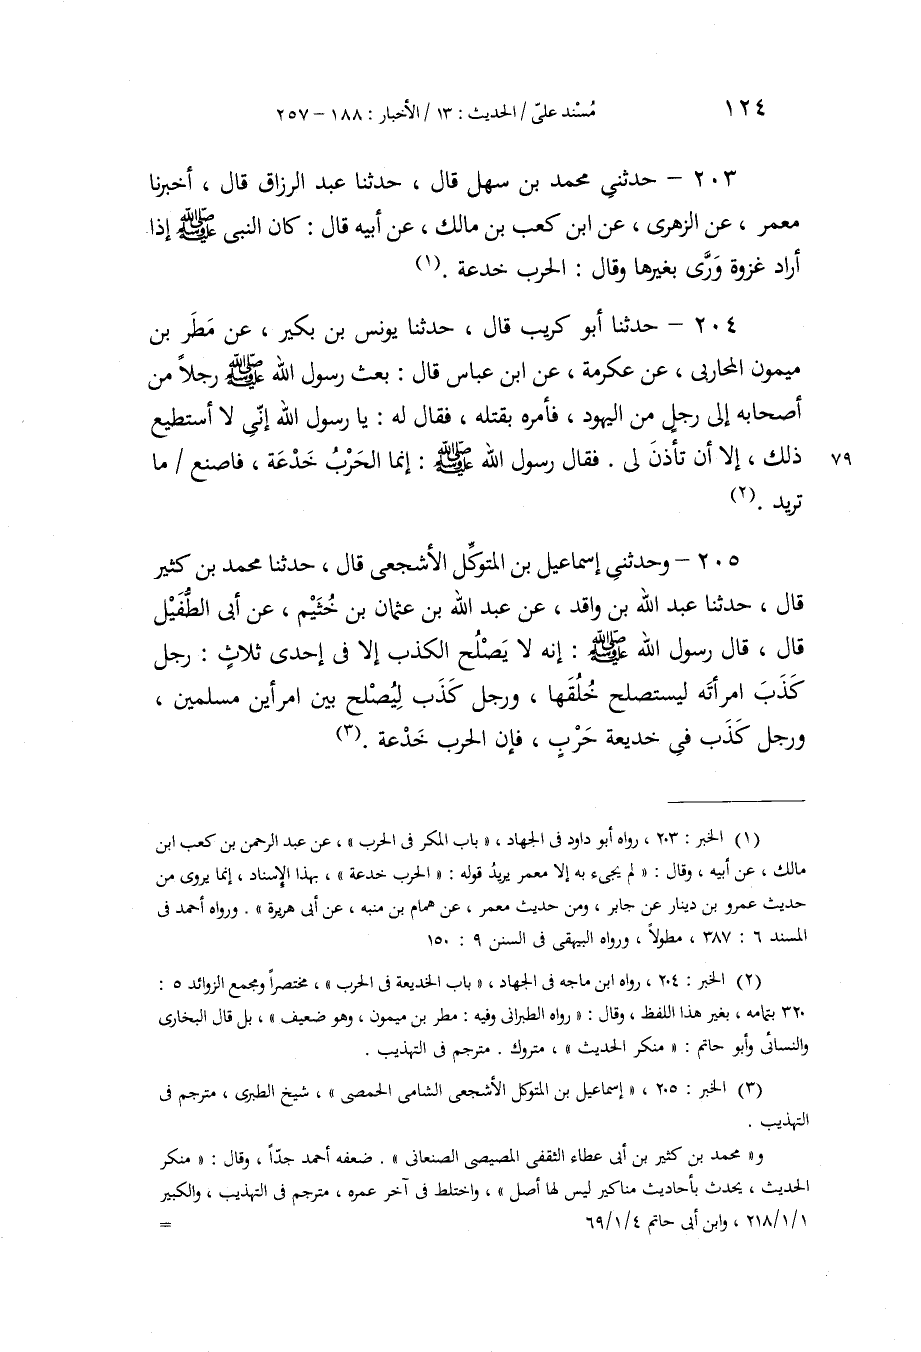 ١٢٤ مُسْند علىّ / الحديث : ١٣ / الأخبار : ١٨٨ – ٢٥٧
٢٠٣ – حدثني محمد بن سهل قال ، حدثنا عبد الرزاق قال ، أخبرنا
معمر ، عن الزهرى ، عن ابن كعب بن مالك ، عن أبيه قال : كان النبى ﷺ إذا
أراد غزوة وَرَّى بغيرها وقال : الحرب خدعة .(١)
٢٠٤ – حدثنا أبو كريب قال ، حدثنا يونس بن بكير ، عن مَطَر بن
ميمون المحاربى ، عن عكرمة ، عن ابن عباس قال : بعث رسول الله ﷺ رجلاً من
أصحابه إلى رجلٍ من اليهود ، فأمره بقتله ، فقال له : يا رسول الله إنّي لا أستطيع
٧٩ ذلك ، إلا أن تأذنَ لى . فقال رسول الله ﷺ : إنما الحَرْبُ خَدْعَة ، فاصنع / ما
تريد .(٢)
٢٠٥ – وحدثني إسماعيل بن المتوكِّل الأشجعى قال ، حدثنا محمد بن كثير
قال ، حدثنا عبد الله بن واقد ، عن عبد الله بن عثمان بن خُثَيْم ، عن أبى الطُّفَيْل
قال ، قال رسول الله ﷺ : إنه لا يَصْلُح الكذب إلا فى إحدى ثلاثٍ : رجل
كَذَبَ امرأتَه ليستصلح خُلُقَها ، ورجل كَذَب لِيُصْلح بين امرأين مسلمين ،
ورجل كَذَب في خديعة حَرْبٍ ، فإن الحرب خَدْعة .(٣)
(١) الخبر : ٢٠٣ ، رواه أبو داود فى الجهاد ، « باب المكر فى الحرب » ، عن عبد الرحمن بن كعب ابن
مالك ، عن أبيه ، وقال : « لم يجىء به إلا معمر يريدُ قوله : « الحرب خدعة » ، بهذا الإسناد ، إنما يروى من
حديث عمرو بن دينار عن جابر ، ومن حديث معمر ، عن همام بن منبه ، عن أبى هريرة » . ورواه أحمد فى
المسند ٦ : ٣٨٧ ، مطولاً ، ورواه البيهقى فى السنن ٩ : ١٥٠
(٢) الخبر : ٢٠٤ ، رواه ابن ماجه فى الجهاد ، « باب الخديعة فى الحرب » ، مختصراً ومجمع الزوائد ٥ :
٣٢٠ بتمامه ، بغير هذا اللفظ ، وقال : « رواه الطبرانى وفيه : مطر بن ميمون ، وهو ضعيف » ، بل قال البخارى
والنسائى وأبو حاتم : « منكر الحديث » ، متروك . مترجم فى التهذيب .
(٣) الخبر : ٢٠٥ ، « إسماعيل بن المتوكل الأشجعى الشامى الحمصى » ، شيخ الطبرى ، مترجم فى
التهذيب .
و« محمد بن كثير بن أبى عطاء الثقفى المصيصى الصنعانى » . ضعفه أحمد جدّاً ، وقال : « منكر
الحديث ، يحدث بأحاديث مناكير ليس لها أصل » ، واختلط فى آخر عمره ، مترجم فى التهذيب ، والكبير
٢١٨/١/١ ، وابن أبى حاتم ٦٩/١/٤ =